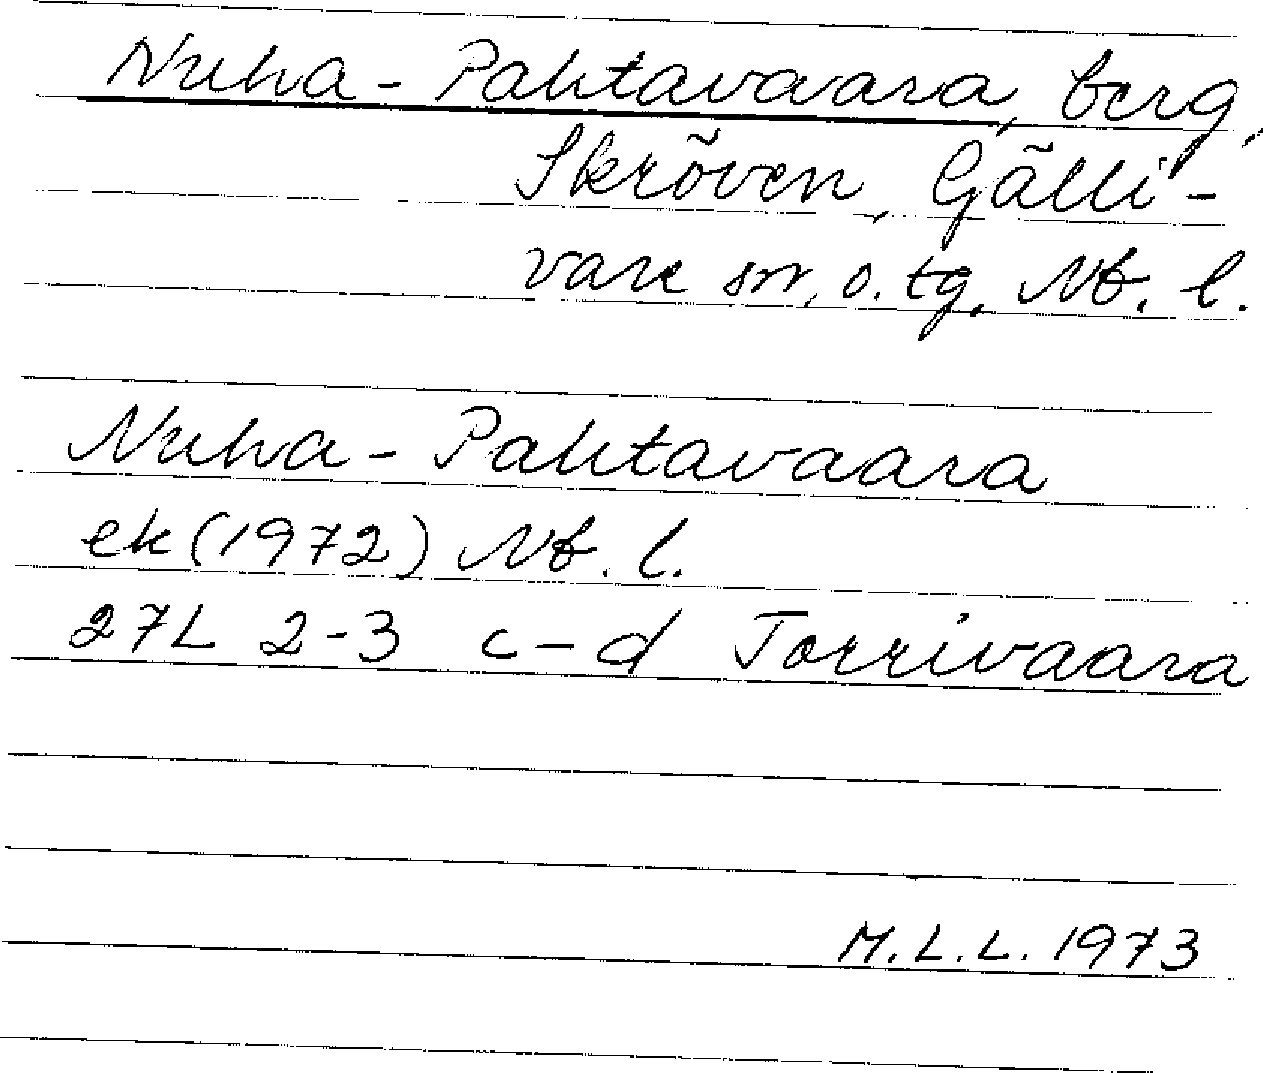 Nuha-Pahtavaara, berg,
Skröven, Gälli-
vare sn, o. tg, Nb. l.
Nuha-Pahtavaara
ek (1972) Nb. l.
27L 2-3 c-d Torrivaara
M.L.L. 1973